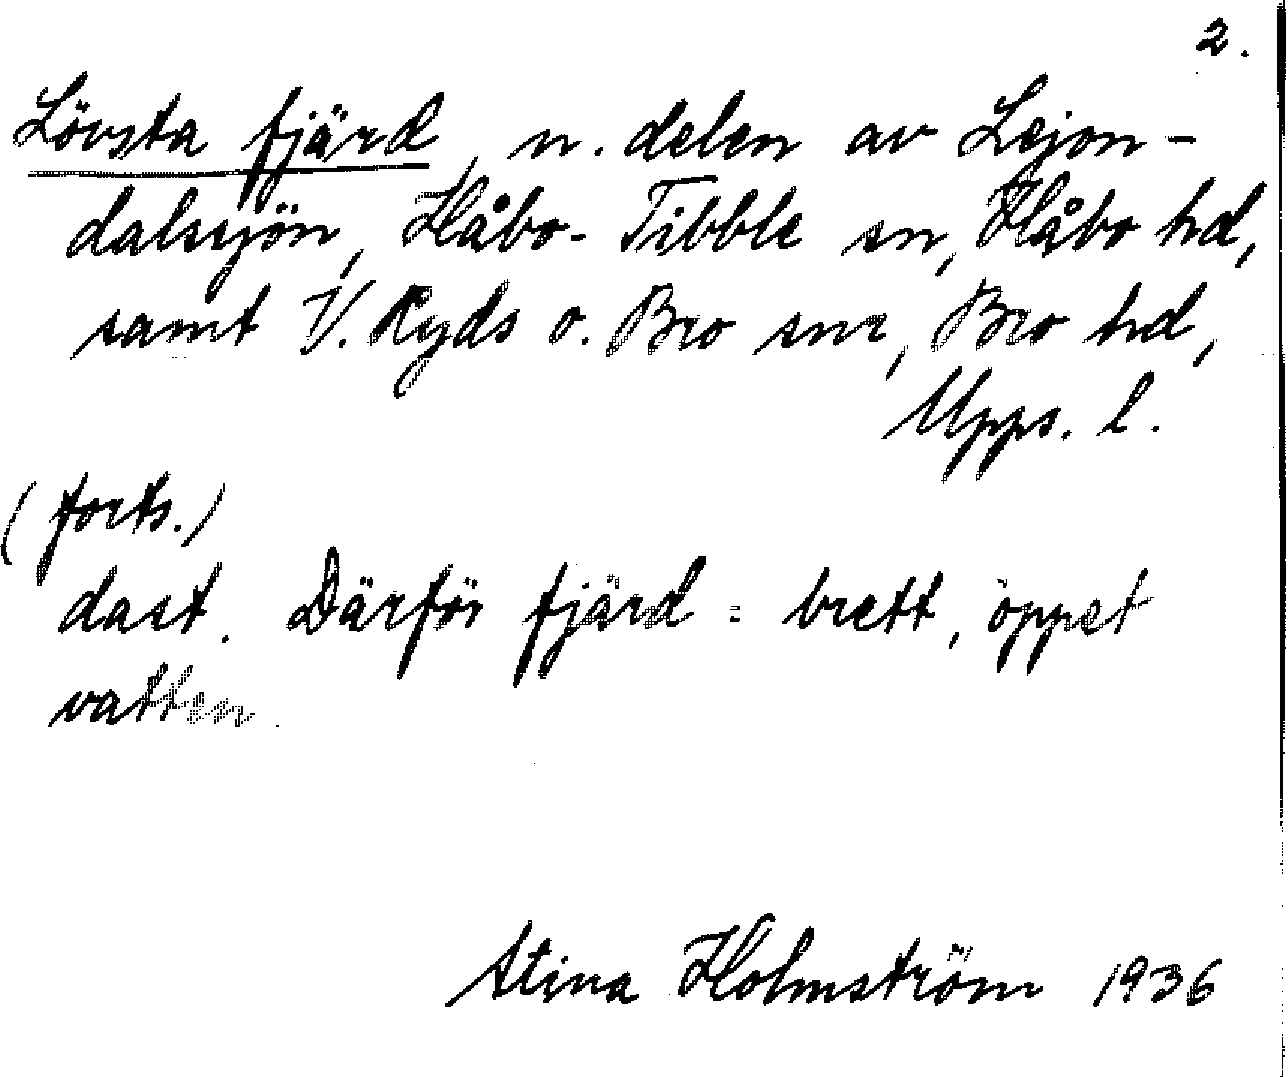 2.
Lövsta fjärd, n. delen av Lejon-
dalssjön, Håbo-Tibble sn, Håbo hd,
samt V. Ryds o. Bro snr, Bro hd,
Upps. l.
(forts.)
dast. Därför fjärd = brett, öppet
vatten.
Stina Holmström 1936